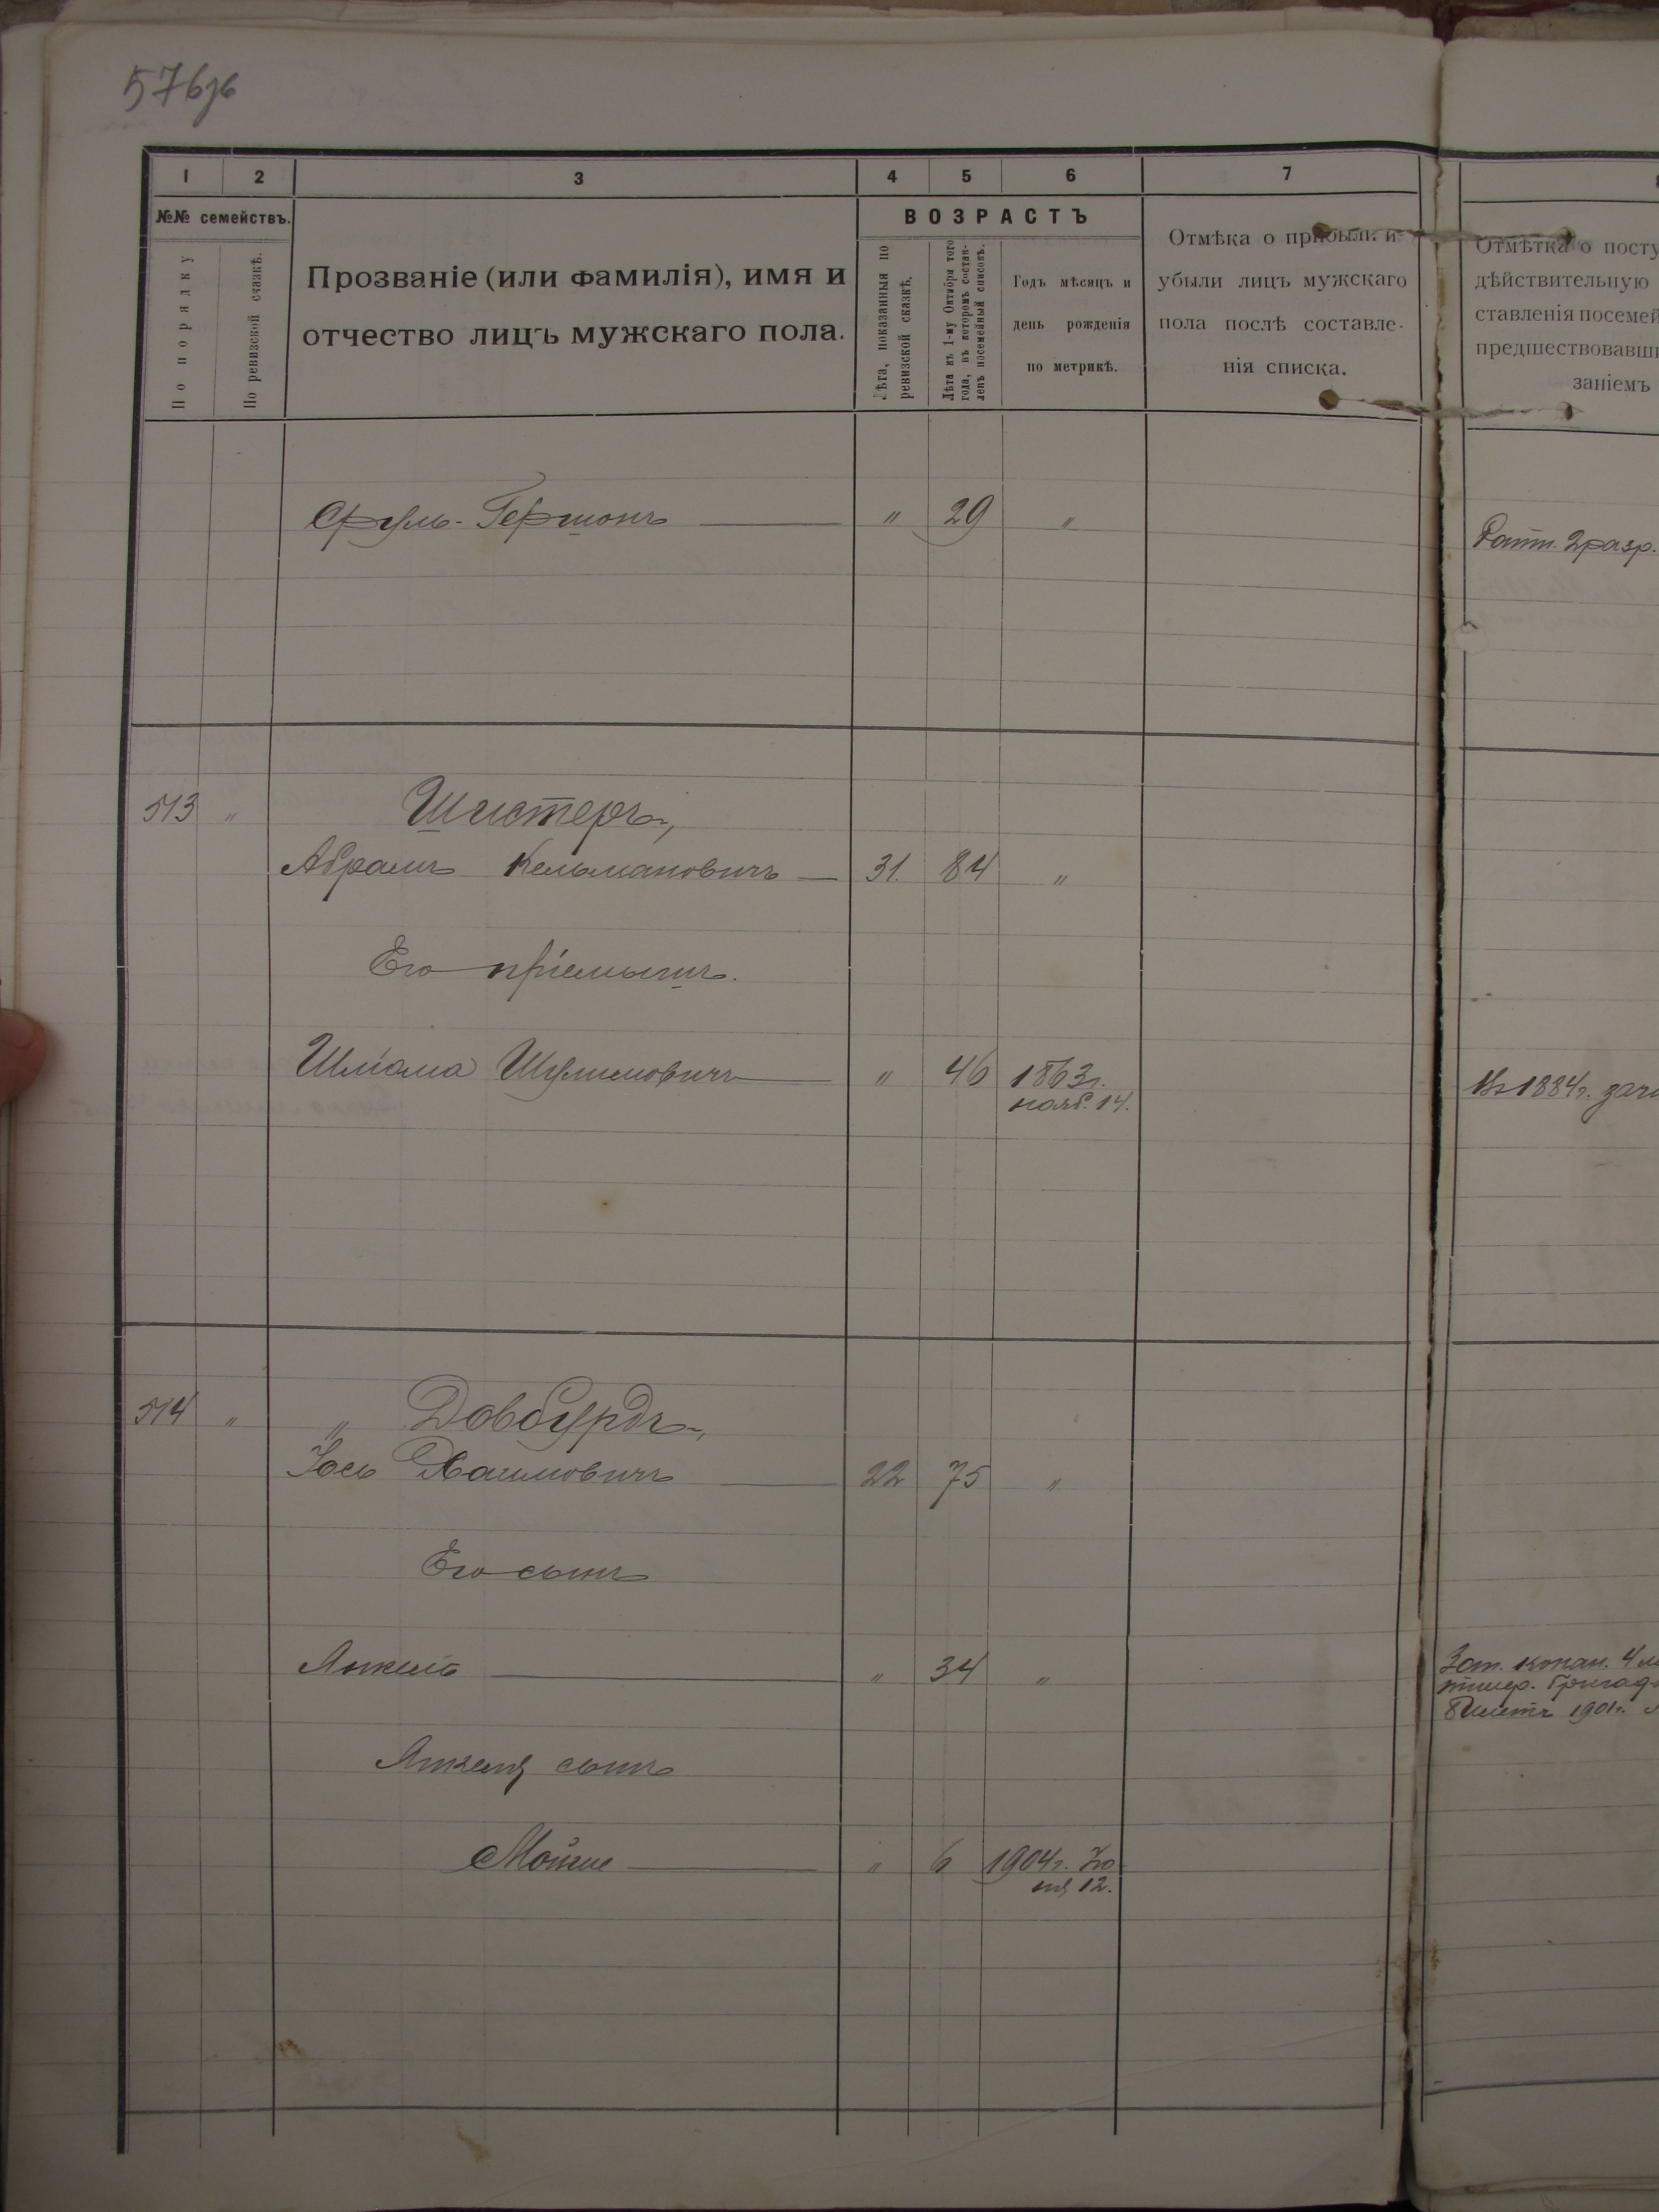 576об
1 2 3 4 5 6 7
№№ семействъ.
По порядку
По ревизской сказкѣ.
Прозваніе (или фамилія), имя и
отчество лицъ мужскаго пола.
ВОЗРАСТЪ
Лѣта, показанныя по
ревизской сказкѣ.
Лѣта къ 1-му Октября того
года, въ которомъ состав-
ленъ посемейный списокъ.
Годъ мѣсяцъ и
день рожденія
по метрикѣ.
Отмѣка о прибыли и
убыли лицъ мужскаго
пола послѣ составле-
нія списка.
Отмѣтка о посту
дѣйствительную
ставленія посемей
предшествовавш
заніемъ
Сруль-Гершонъ " 29 "
Ратн. 2 разр.
513 " Шистеръ,
Абрамъ Кельмановичъ 31. 84 "
Его пріемышъ.
Шлёма Шулимовичъ " 46 1863г.
нояб. 14.
Въ 1884г. зачи
514 " " Довбурдъ,
Іось Хаимовичъ 22 75 "
Его сынъ
Янкель " 34 "
Зап. канон. 4
тилер. бригад
билетъ 1901г.
Янкеля сынъ
Мойше " 6 1904г. Iю-
ня 12.